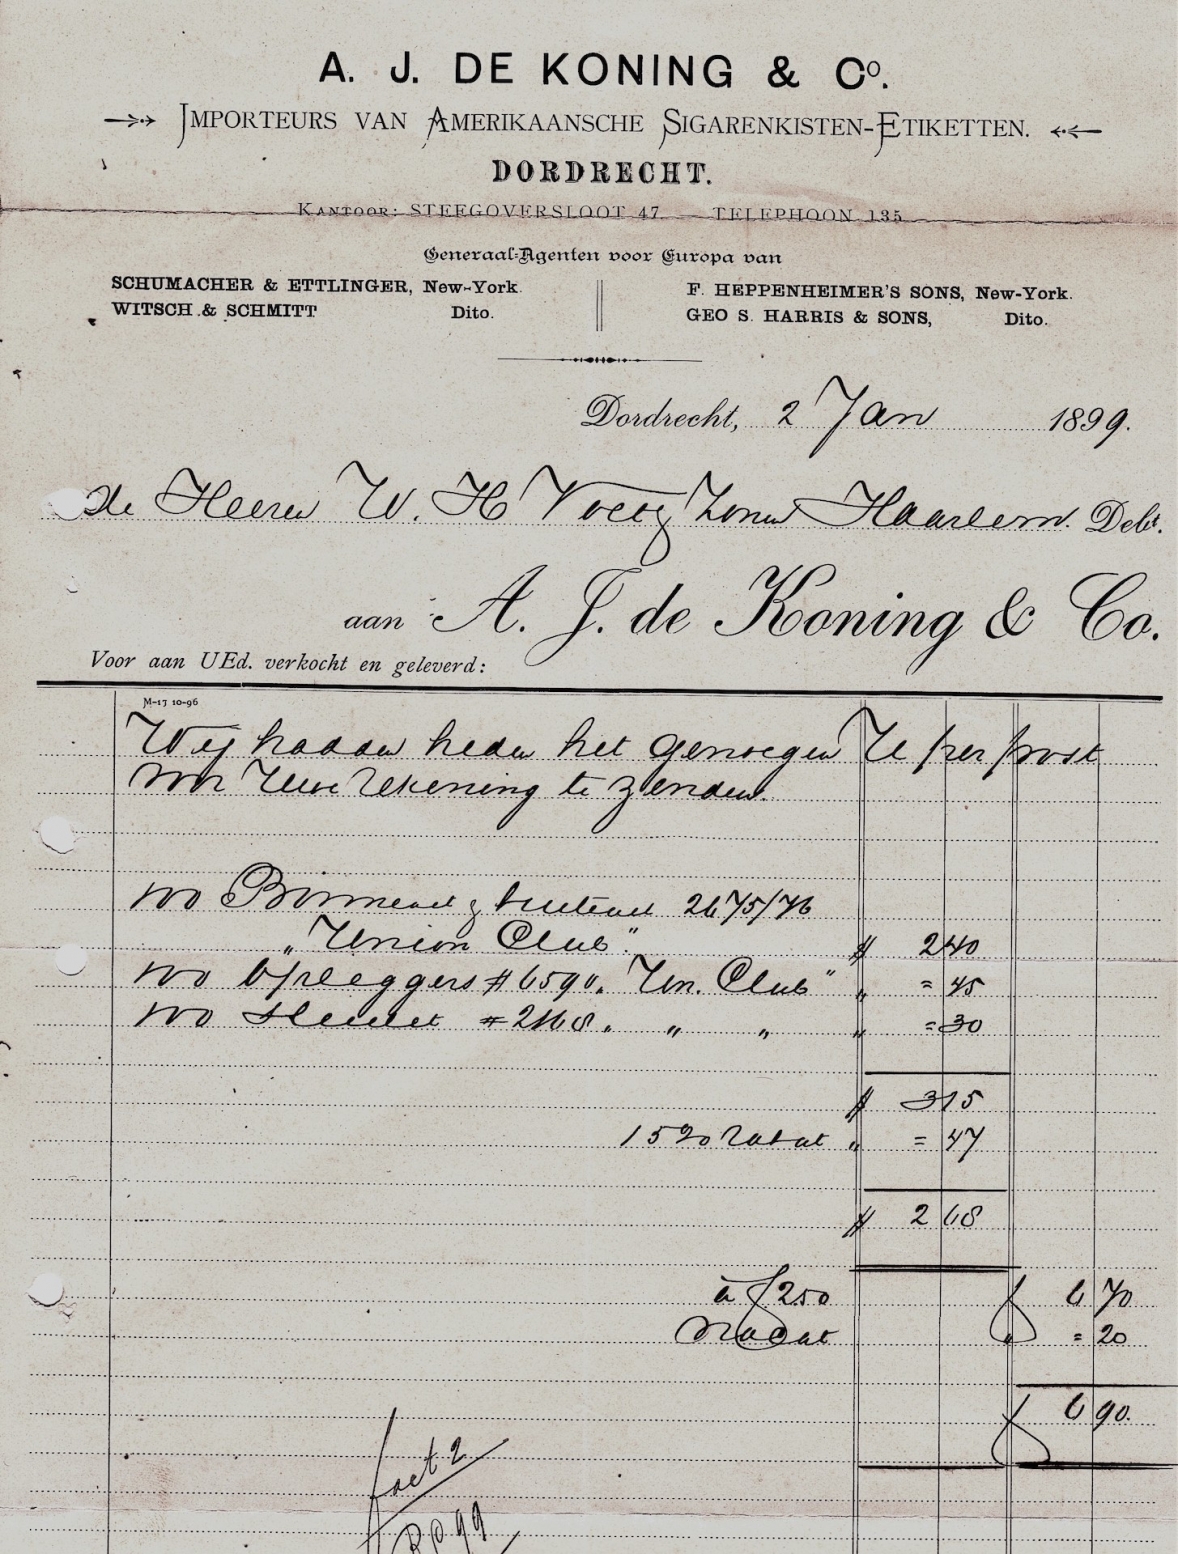 A. J. DE KONING & Cº.
IMPORTEURS VAN AMERIKAANSCHE SIGARENKISTEN-ETIKETTEN.
DORDRECHT.
KANTOOR: STEEGOVERSLOOT 47. — TELEPHOON 135
Generaal-Agenten voor Europa van
SCHUMACHER & ETTLINGER, New-York.
WITSCH & SCHMITT Dito.
F. HEPPENHEIMER'S SONS, New-York.
GEO S. HARRIS & SONS, Dito.
Dordrecht, 2 Jan 1899.
de Heeren W. H Voetz Zonen Haarlem. Debt.
aan A. J. de Koning & Co.
Voor aan UEd. verkocht en geleverd:
M-17 10-96
Wij hadden heden het genoegen U per post
voor Uwe rekening te zenden.
100 Binnen & buiten 2675/76
„Union Club" $ 2 40
100 Opleggers # 6590. "Un. Club" „ = 45
100 # 2168. „ „ „ = 30
$ 3 15
15% rabat „ = 47
$ 2 68
à ƒ 2 50 ƒ 6 70
„ = 20
ƒ 6 90.
fact 2
99